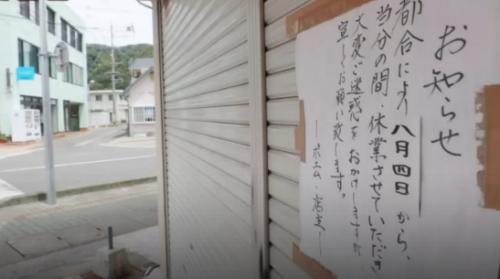 お知らせ
都合により八月四日から、
当分の間、休業させていただき
大変ご迷惑をおかけしますが
宜しくお願い致します。